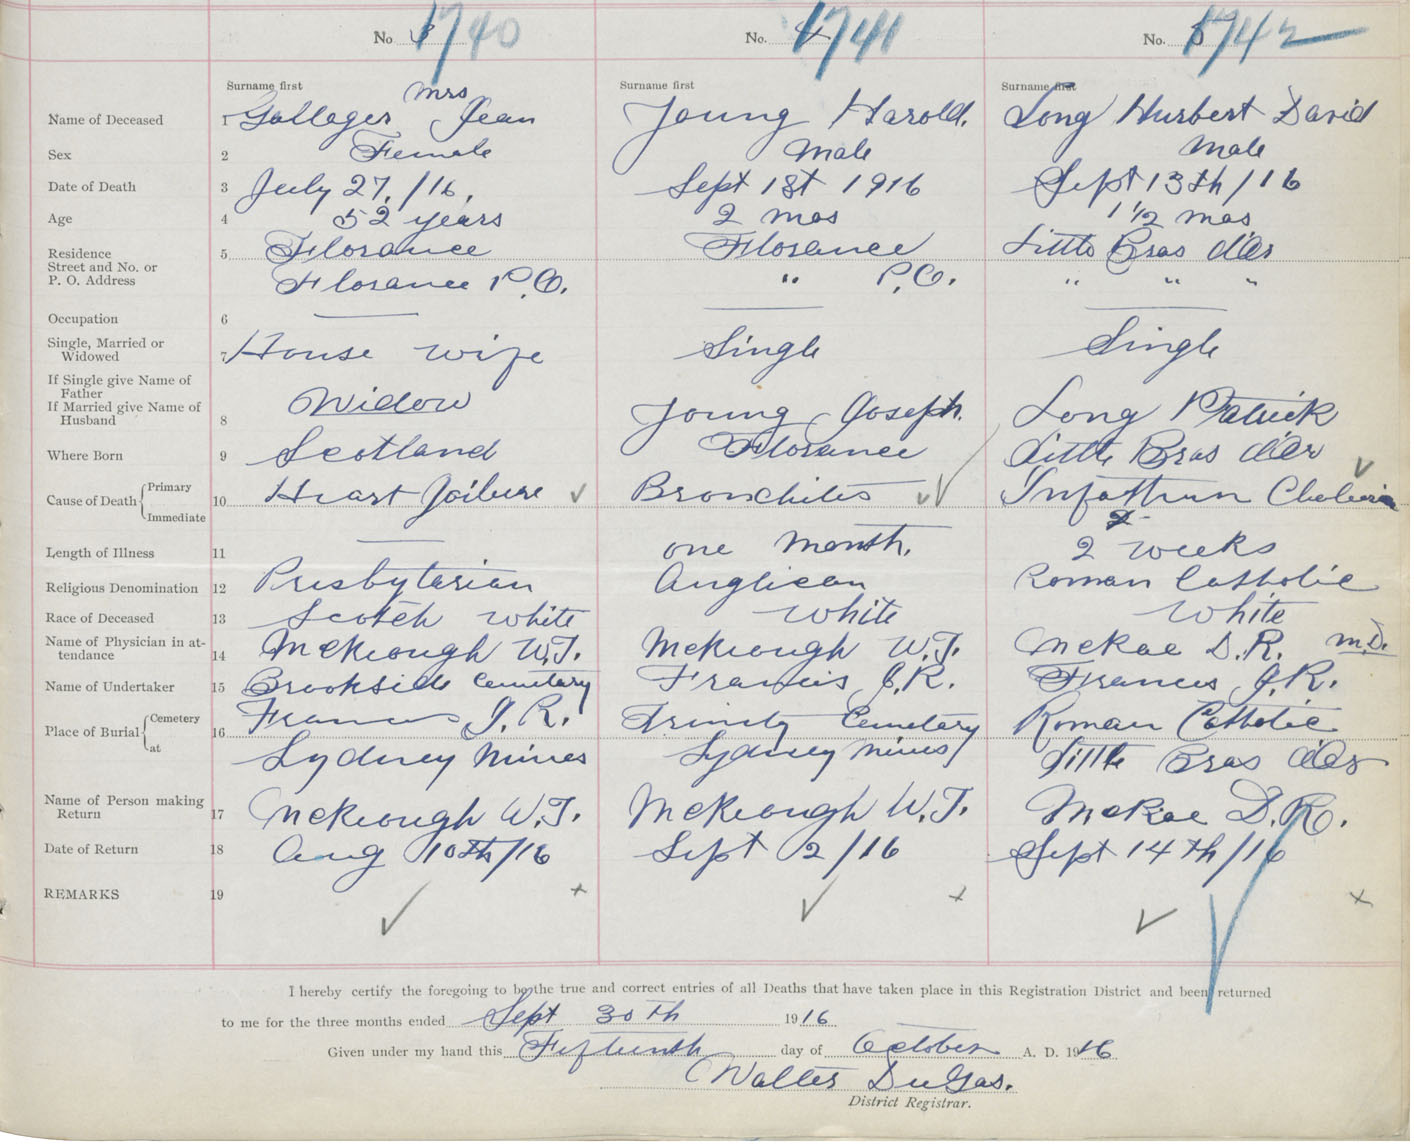 No 3 1740 No. 4 1741 No. 5 1742
Surname first Surname first Surname first
Mrs
Name of Deceased 1 Gallager Jean Joung Harold. Long Hurbert David
Sex 2 Female Male Male
Date of Death 3 July 27,/16, Sept 1st 1916 Sept 13th/16
Age 4 52 years 2 mos 1 1/2 mos
Residence 5 Florance Florance Little Bras d'Or
Street and No. or
P. O. Address Florance P.O. " P.O. " " "
Occupation 6
Single, Married or
Widowed 7 House wife Single Single
If Single give Name of
Father
If Married give Name of
Husband 8 Widow Joung Joseph. Long Patrick
Where Born 9 Scotland Florance Little Bras d'Or
Cause of Death Primary
Immediate 10 Heart Failure Bronchites Infattum
Length of Illness 11 one month. 2 weeks
Religious Denomination 12 Presbytarian Anglican Roman Catholic
Race of Deceased 13 Scotch White White White
Name of Physician in at-
tendance 14 McKeough W.T. McKeough W.T. McRae D.R. M.D.
Name of Undertaker 15 Brookside Cemetary Francis J.R. Francis J.R.
Place of Burial Cemetery
at 16 Francis J.R. Trinity Cemetary Roman Catholic
Sydney Mines Sydney Mines Little Bras d'Or
Name of Person making
Return 17 McKeough W.T. McKeough W.T. McRae D.R.
Date of Return 18 Aug 10th/16 Sept 2/16 Sept 14th/16
REMARKS 19
I hereby certify the foregoing to be the true and correct entries of all Deaths that have taken place in this Registration District and been returned
to me for the three months ended Sept 30th 1916
Given under my hand this Fifteenth day of October A. D. 1916
Walter DuGas.
District Registrar.